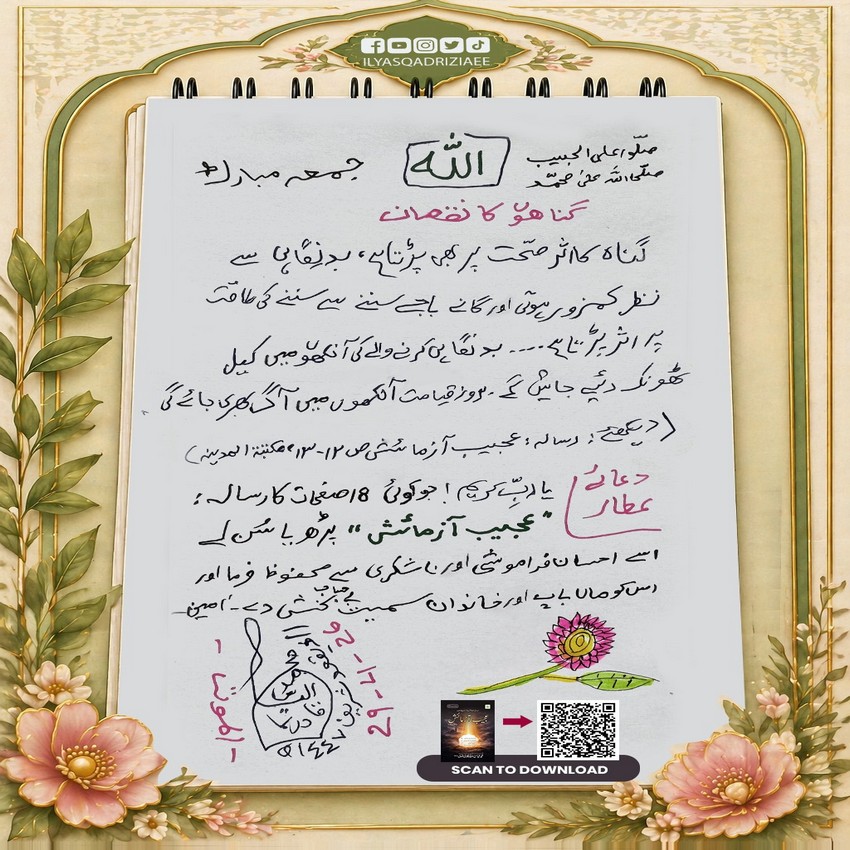 ILYASQADRIZIAEE
صلّوا علی الحبیب
صلی اللہ علیٰ محمّد
اللہ
جمعہ مبارک
گناھوں کا نقصان
گناہ کا اثر صحّت پر بھی پڑتا ہے، بدنِگاہی سے
نظر کمزور ہوتی اور گانے باجے سننے سے سننے کی طاقت
پر اثر پڑتا ہے.... بدنگاہی کرنے والے کی آنکھوں میں کیل
ٹھونک دیئے جائیں گے. بروزِ قیامت آنکھوں میں آگ بھری جائے گی
(دیکھئے: رسالہ: عجیب آزمائش ص ۱۲-۱۳، مکتبۃ المدینہ)
دعائے عطار
یا ربِّ کریم! جو کوئی 18 صفحات کا رسالہ:
"عجیب آزمائش" پڑھ یا سُن لے
اسے احسان فراموشی اور ناشکری سے محفوظ فرما اور
اس کو ماں باپ اور خاندان سمیت بے حساب بخش دے۔ اٰمین
SCAN TO DOWNLOAD